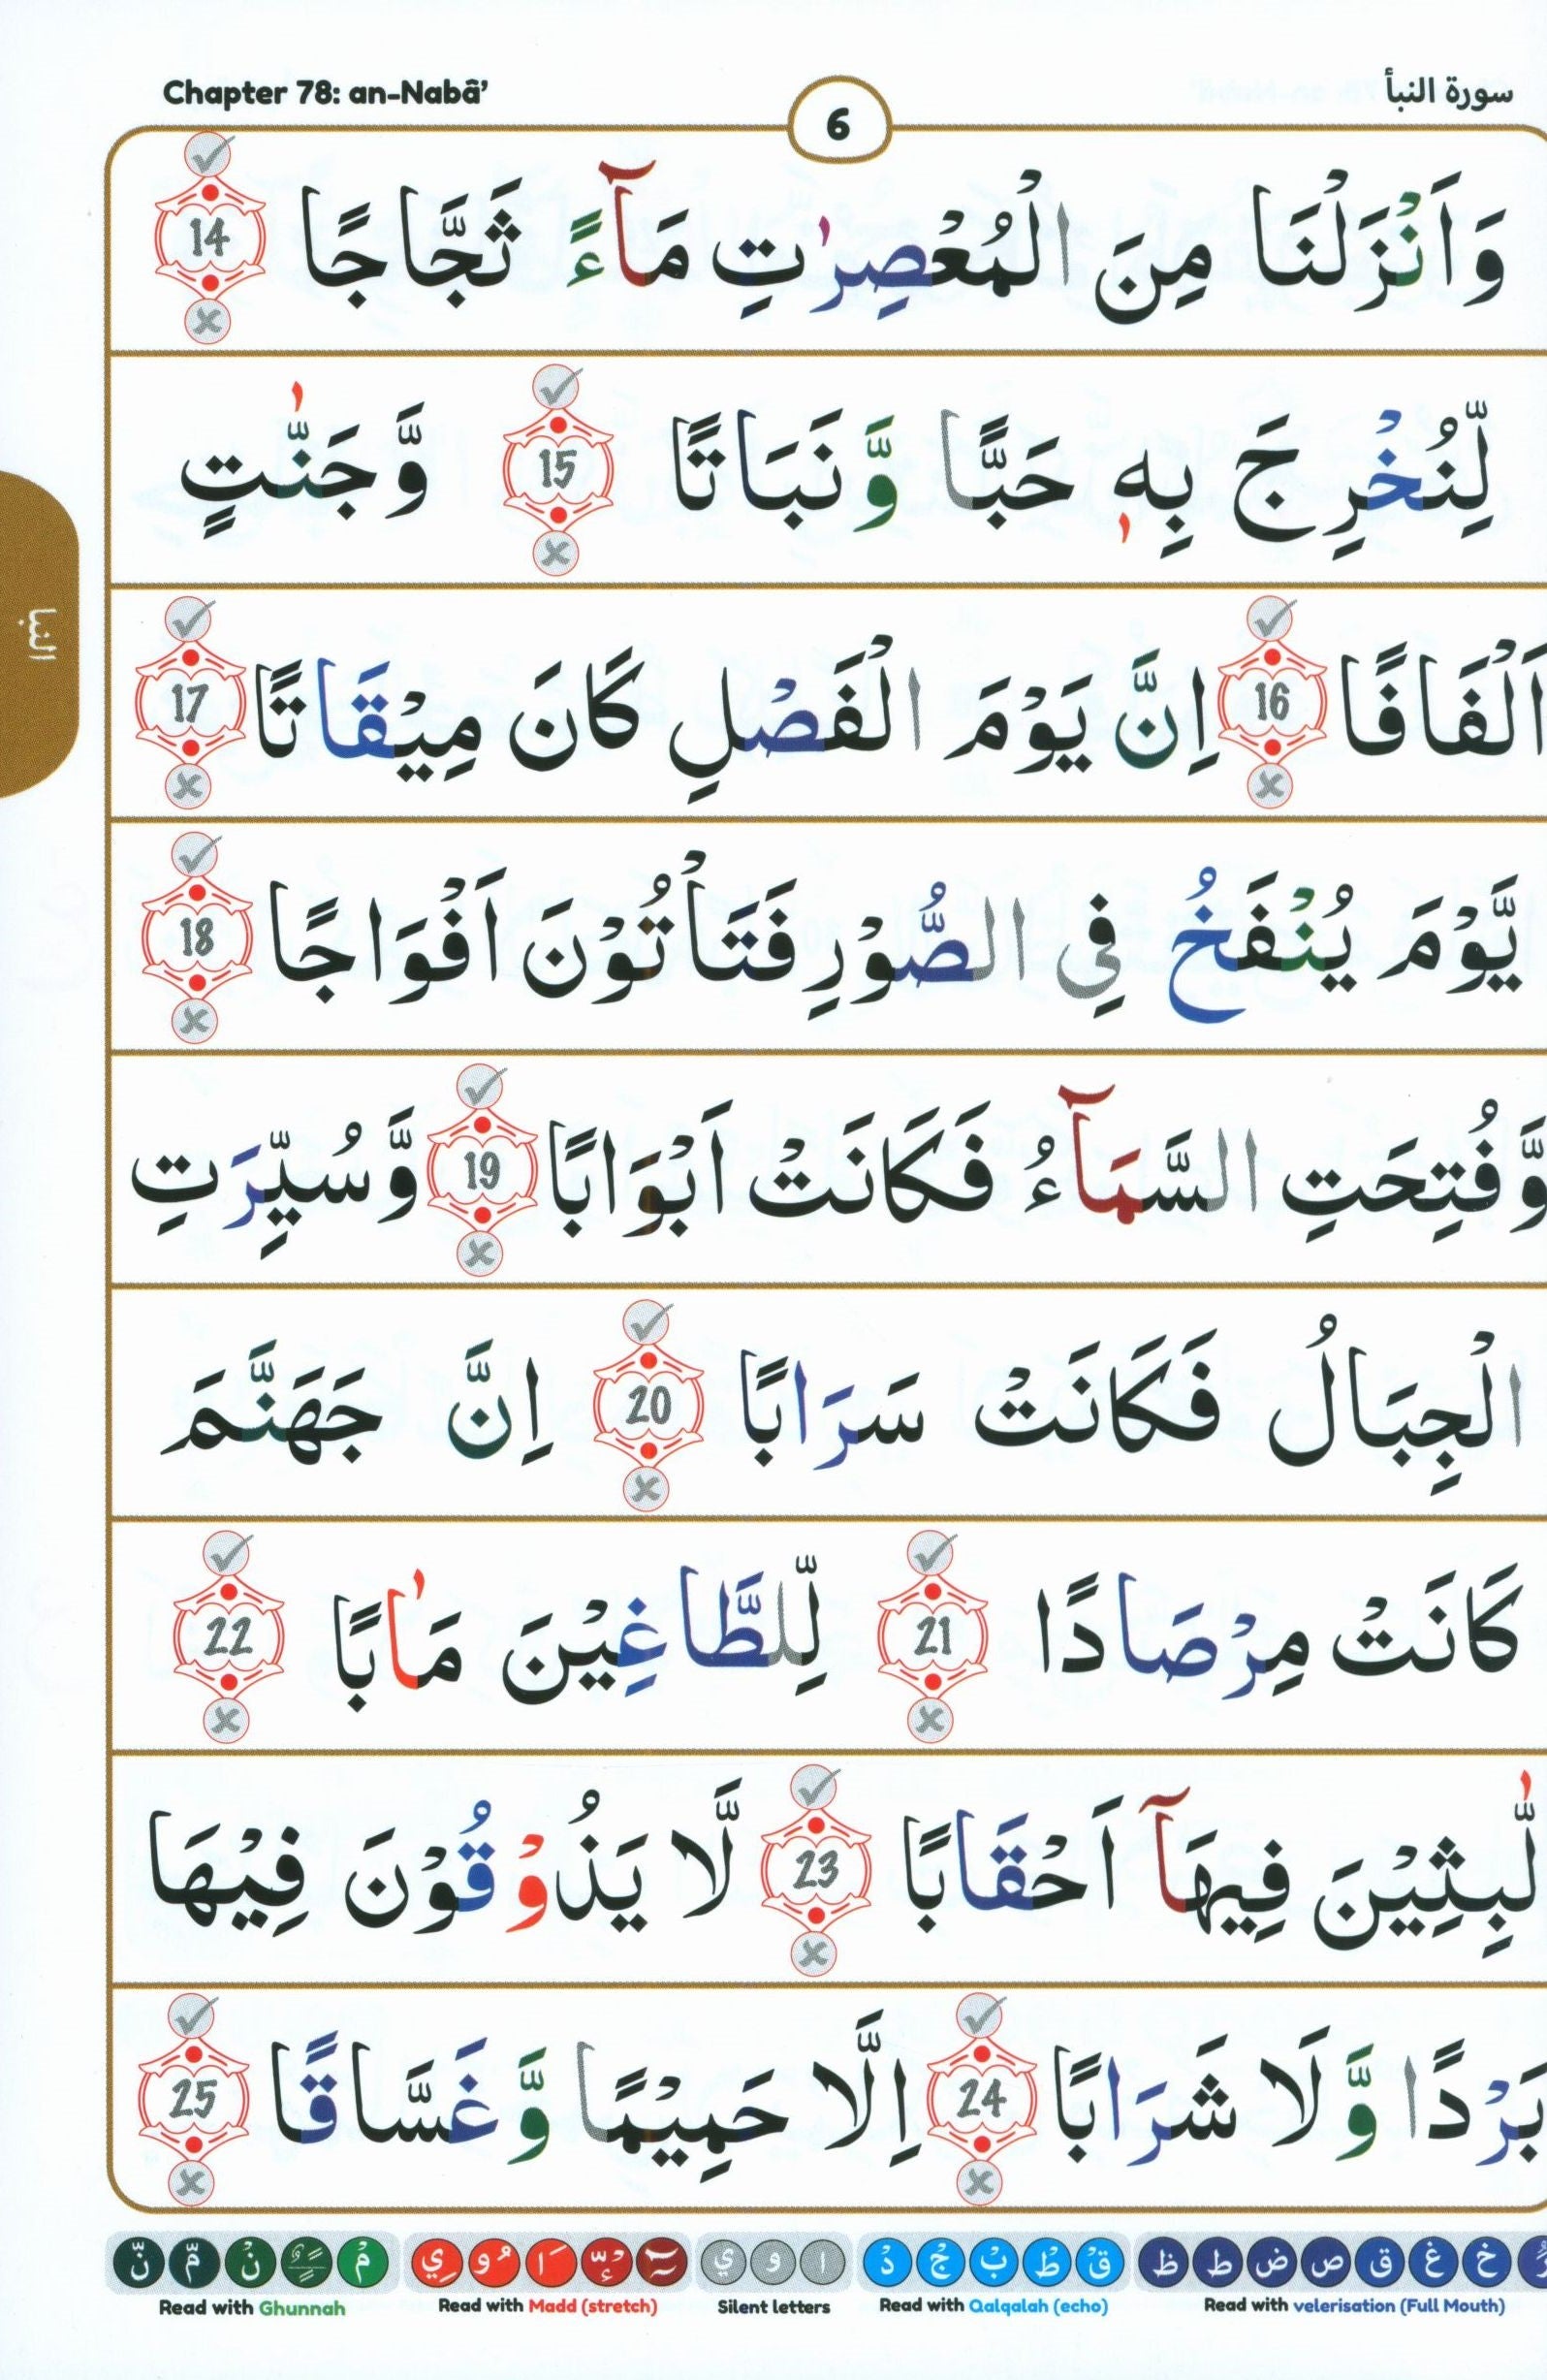 Chapter 78: an-Nabã’ 6 سورة النبأ
وَاَنْزَلْنَا مِنَ الْمُعْصِرٰتِ مَآءً ثَجَّاجًا 14
لِّنُخْرِجَ بِهٖ حَبًّا وَّنَبَاتًا 15 وَّجَنّٰتٍ
اَلْفَافًا 16 اِنَّ يَوْمَ الْفَصْلِ كَانَ مِيْقَاتًا 17
يَّوْمَ يُنْفَخُ فِى الصُّوْرِ فَتَاْتُوْنَ اَفْوَاجًا 18
وَّفُتِحَتِ السَّمَآءُ فَكَانَتْ اَبْوَابًا 19 وَّسُيِّرَتِ
الْجِبَالُ فَكَانَتْ سَرَابًا 20 اِنَّ جَهَنَّمَ
كَانَتْ مِرْصَادًا 21 لِّلطَّاغِيْنَ مَاٰبًا 22
لّٰبِثِيْنَ فِيهَآ اَحْقَابًا 23 لَّا يَذُوْقُوْنَ فِيْهَا
بَرْدًا وَّلَا شَرَابًا 24 اِلَّا حَمِيْمًا وَّغَسَّاقًا 25
النبا
Read with Ghunnah Read with Madd (stretch) Silent letters Read with Qalqalah (echo) Read with velerisation (Full Mouth)